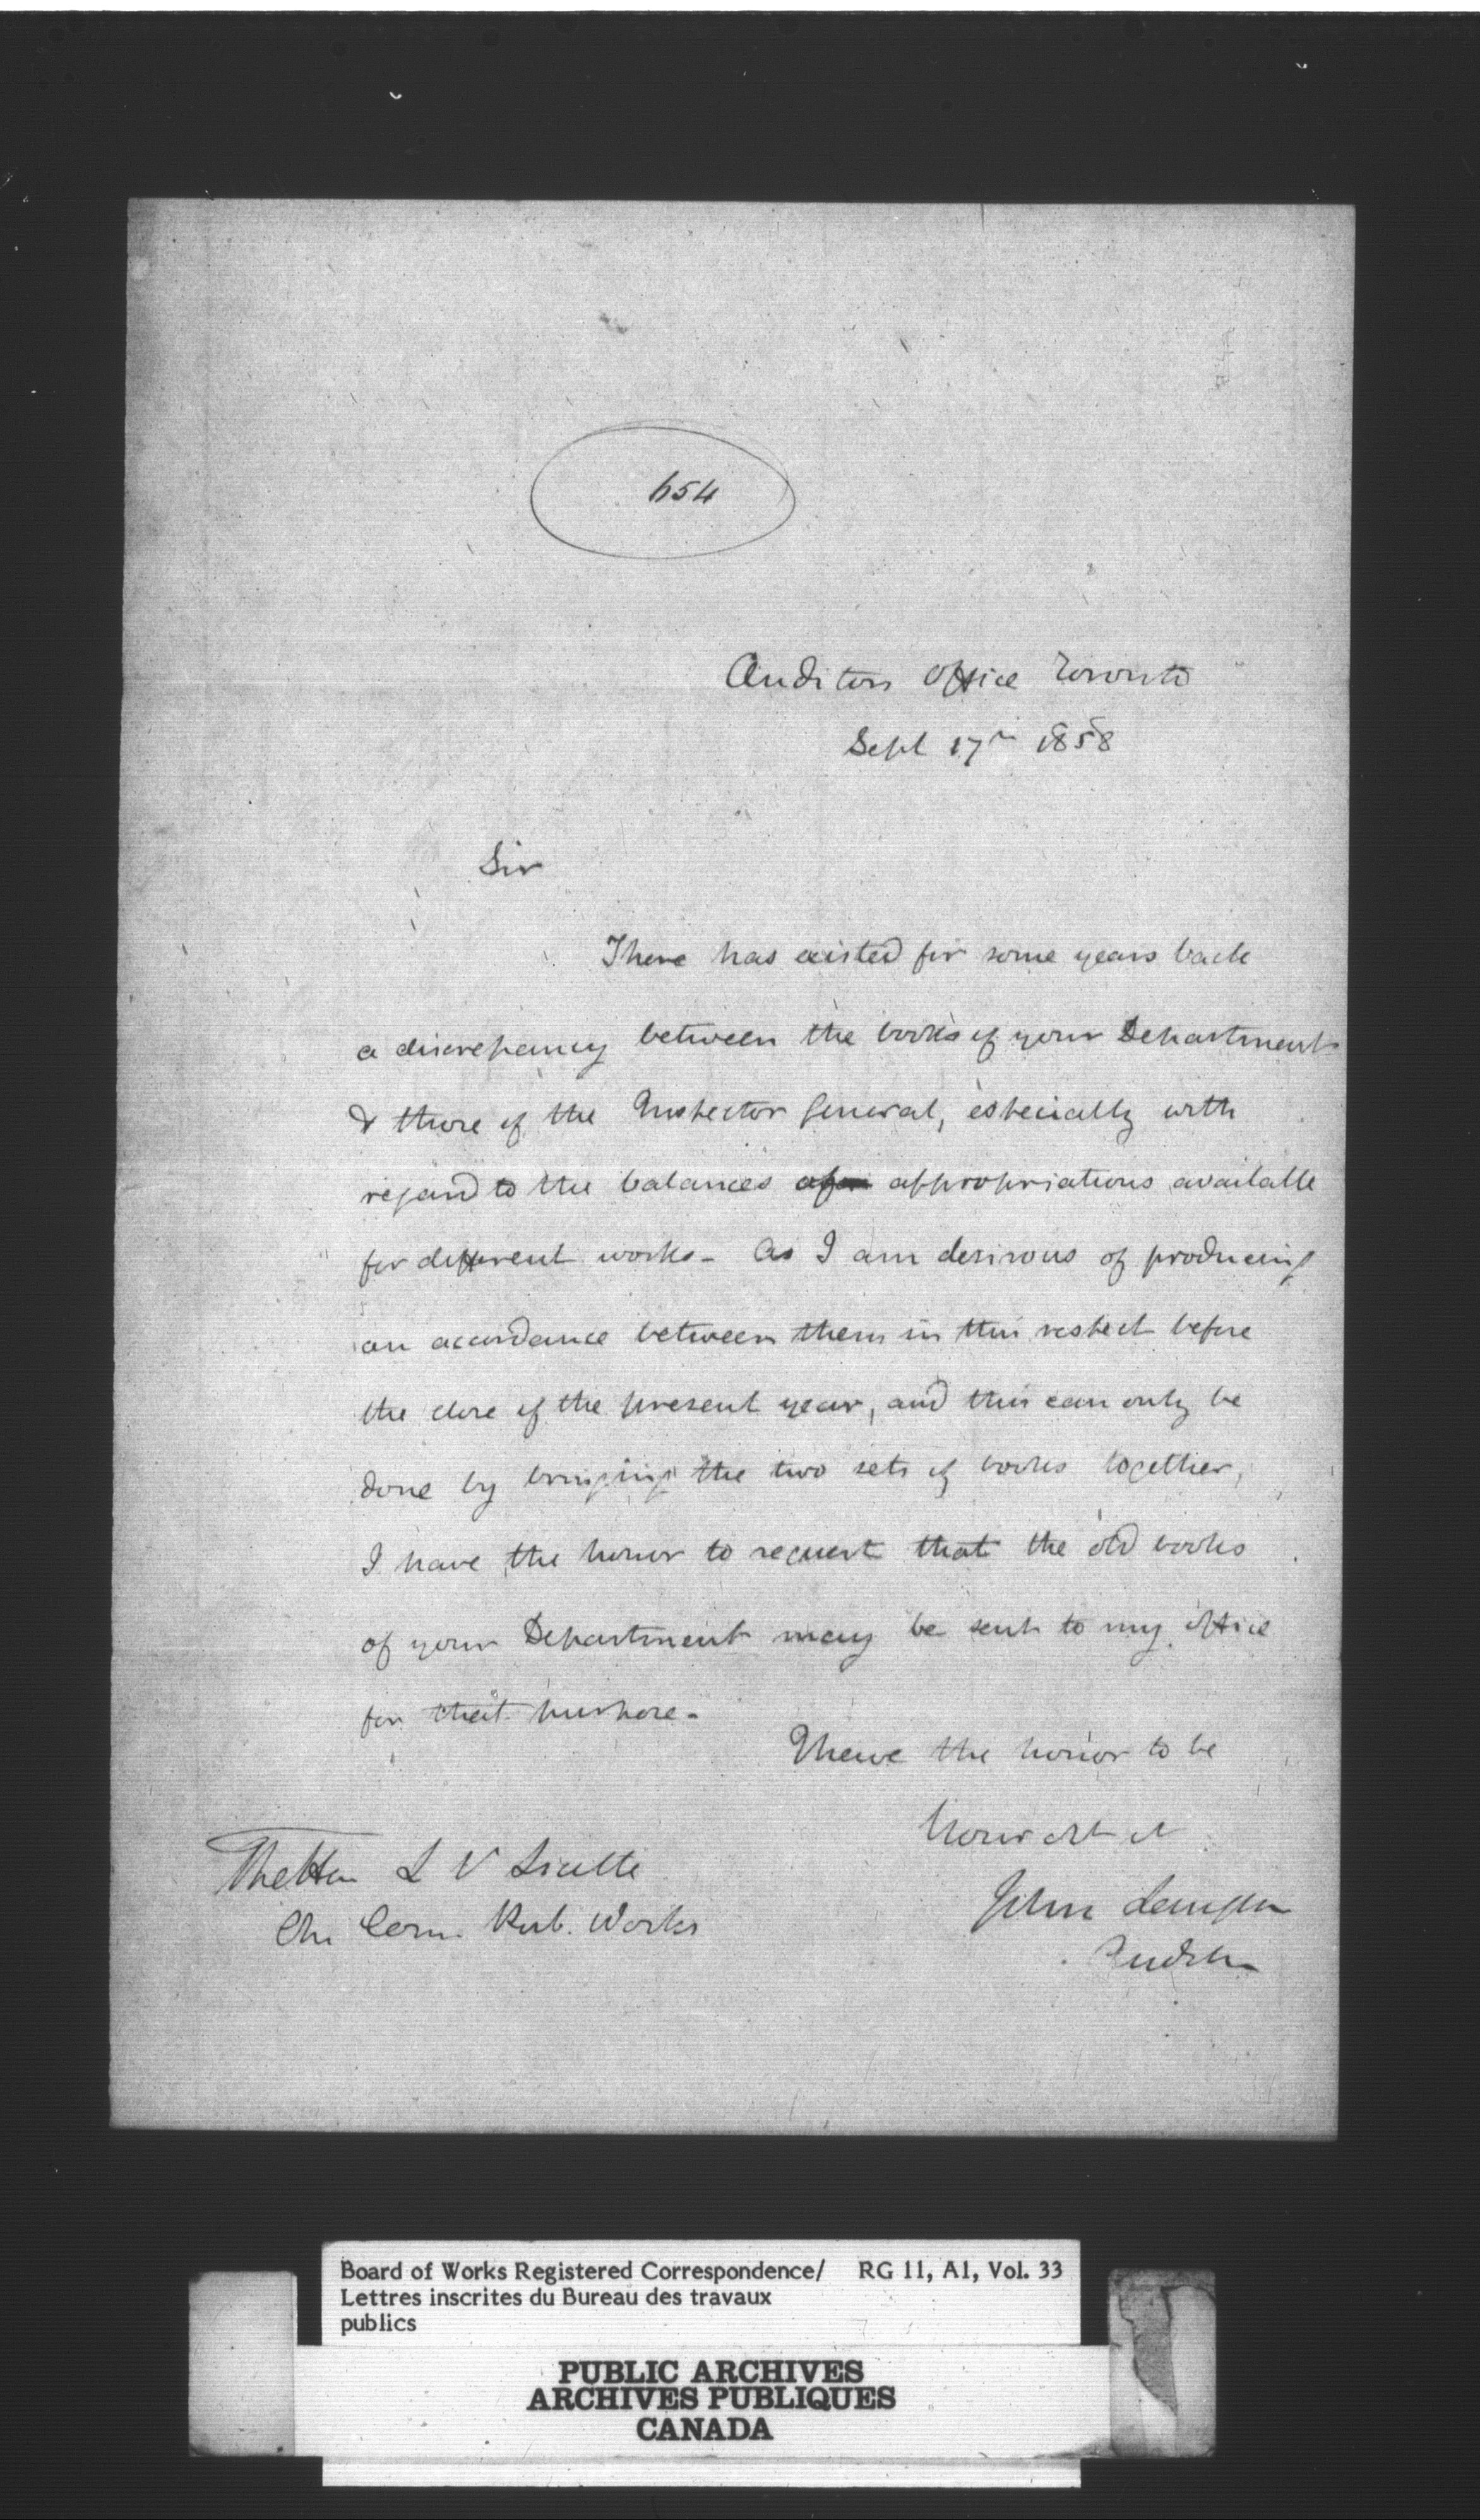 654
Auditors Office Toronto
Sept 17th 1858
Sir
There has existed for some years back
a discrepancy between the books of your Department
& those of the Inspector General, especially with
regard to the balances appropriations available
for different works - As I am desirous of producing
an accordance between them in this respect before
the close of the present year, and this can only be
done by bringing the two sets of books together,
I have the honor to request that the old books
of your Department may be sent to my office
for that purpose -
I have the honor to be
Your obt st
The Hon L V Sicotte
John Langton
Ch Com. Pub. Works
Auditor
Board of Works Registered Correspondence/ RG 11, A1, Vol. 33
Lettres inscrites du Bureau des travaux
publics
PUBLIC ARCHIVES
ARCHIVES PUBLIQUES
CANADA